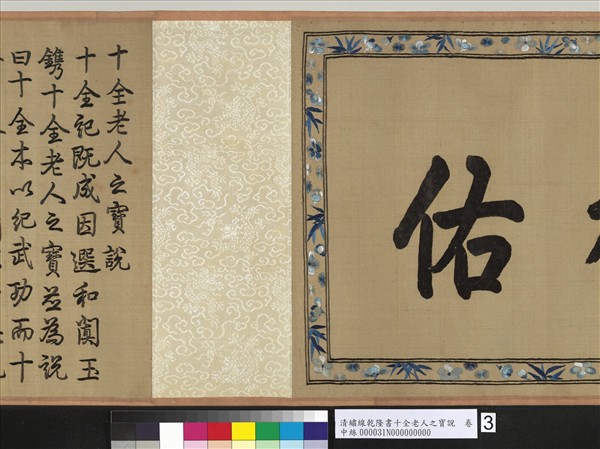 佑
十全老人之寶說
十全記既成因選和闐玉
鐫十全老人之寶並為說
曰十全本以紀武功而十
清繡線乾隆書十全老人之寶說 卷
中絲000031N000000000
3